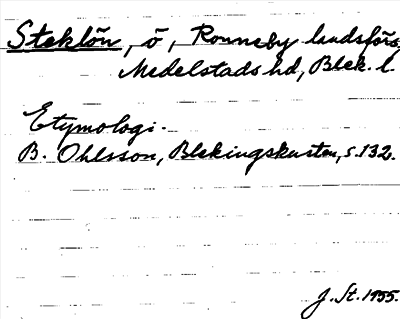 Steklön, ö, Ronneby landsförs.
Medelstads hd, Blek. l.
Etymologi.
B. Ohlsson, Blekingskusten, s. 132.
J. St. 1955.